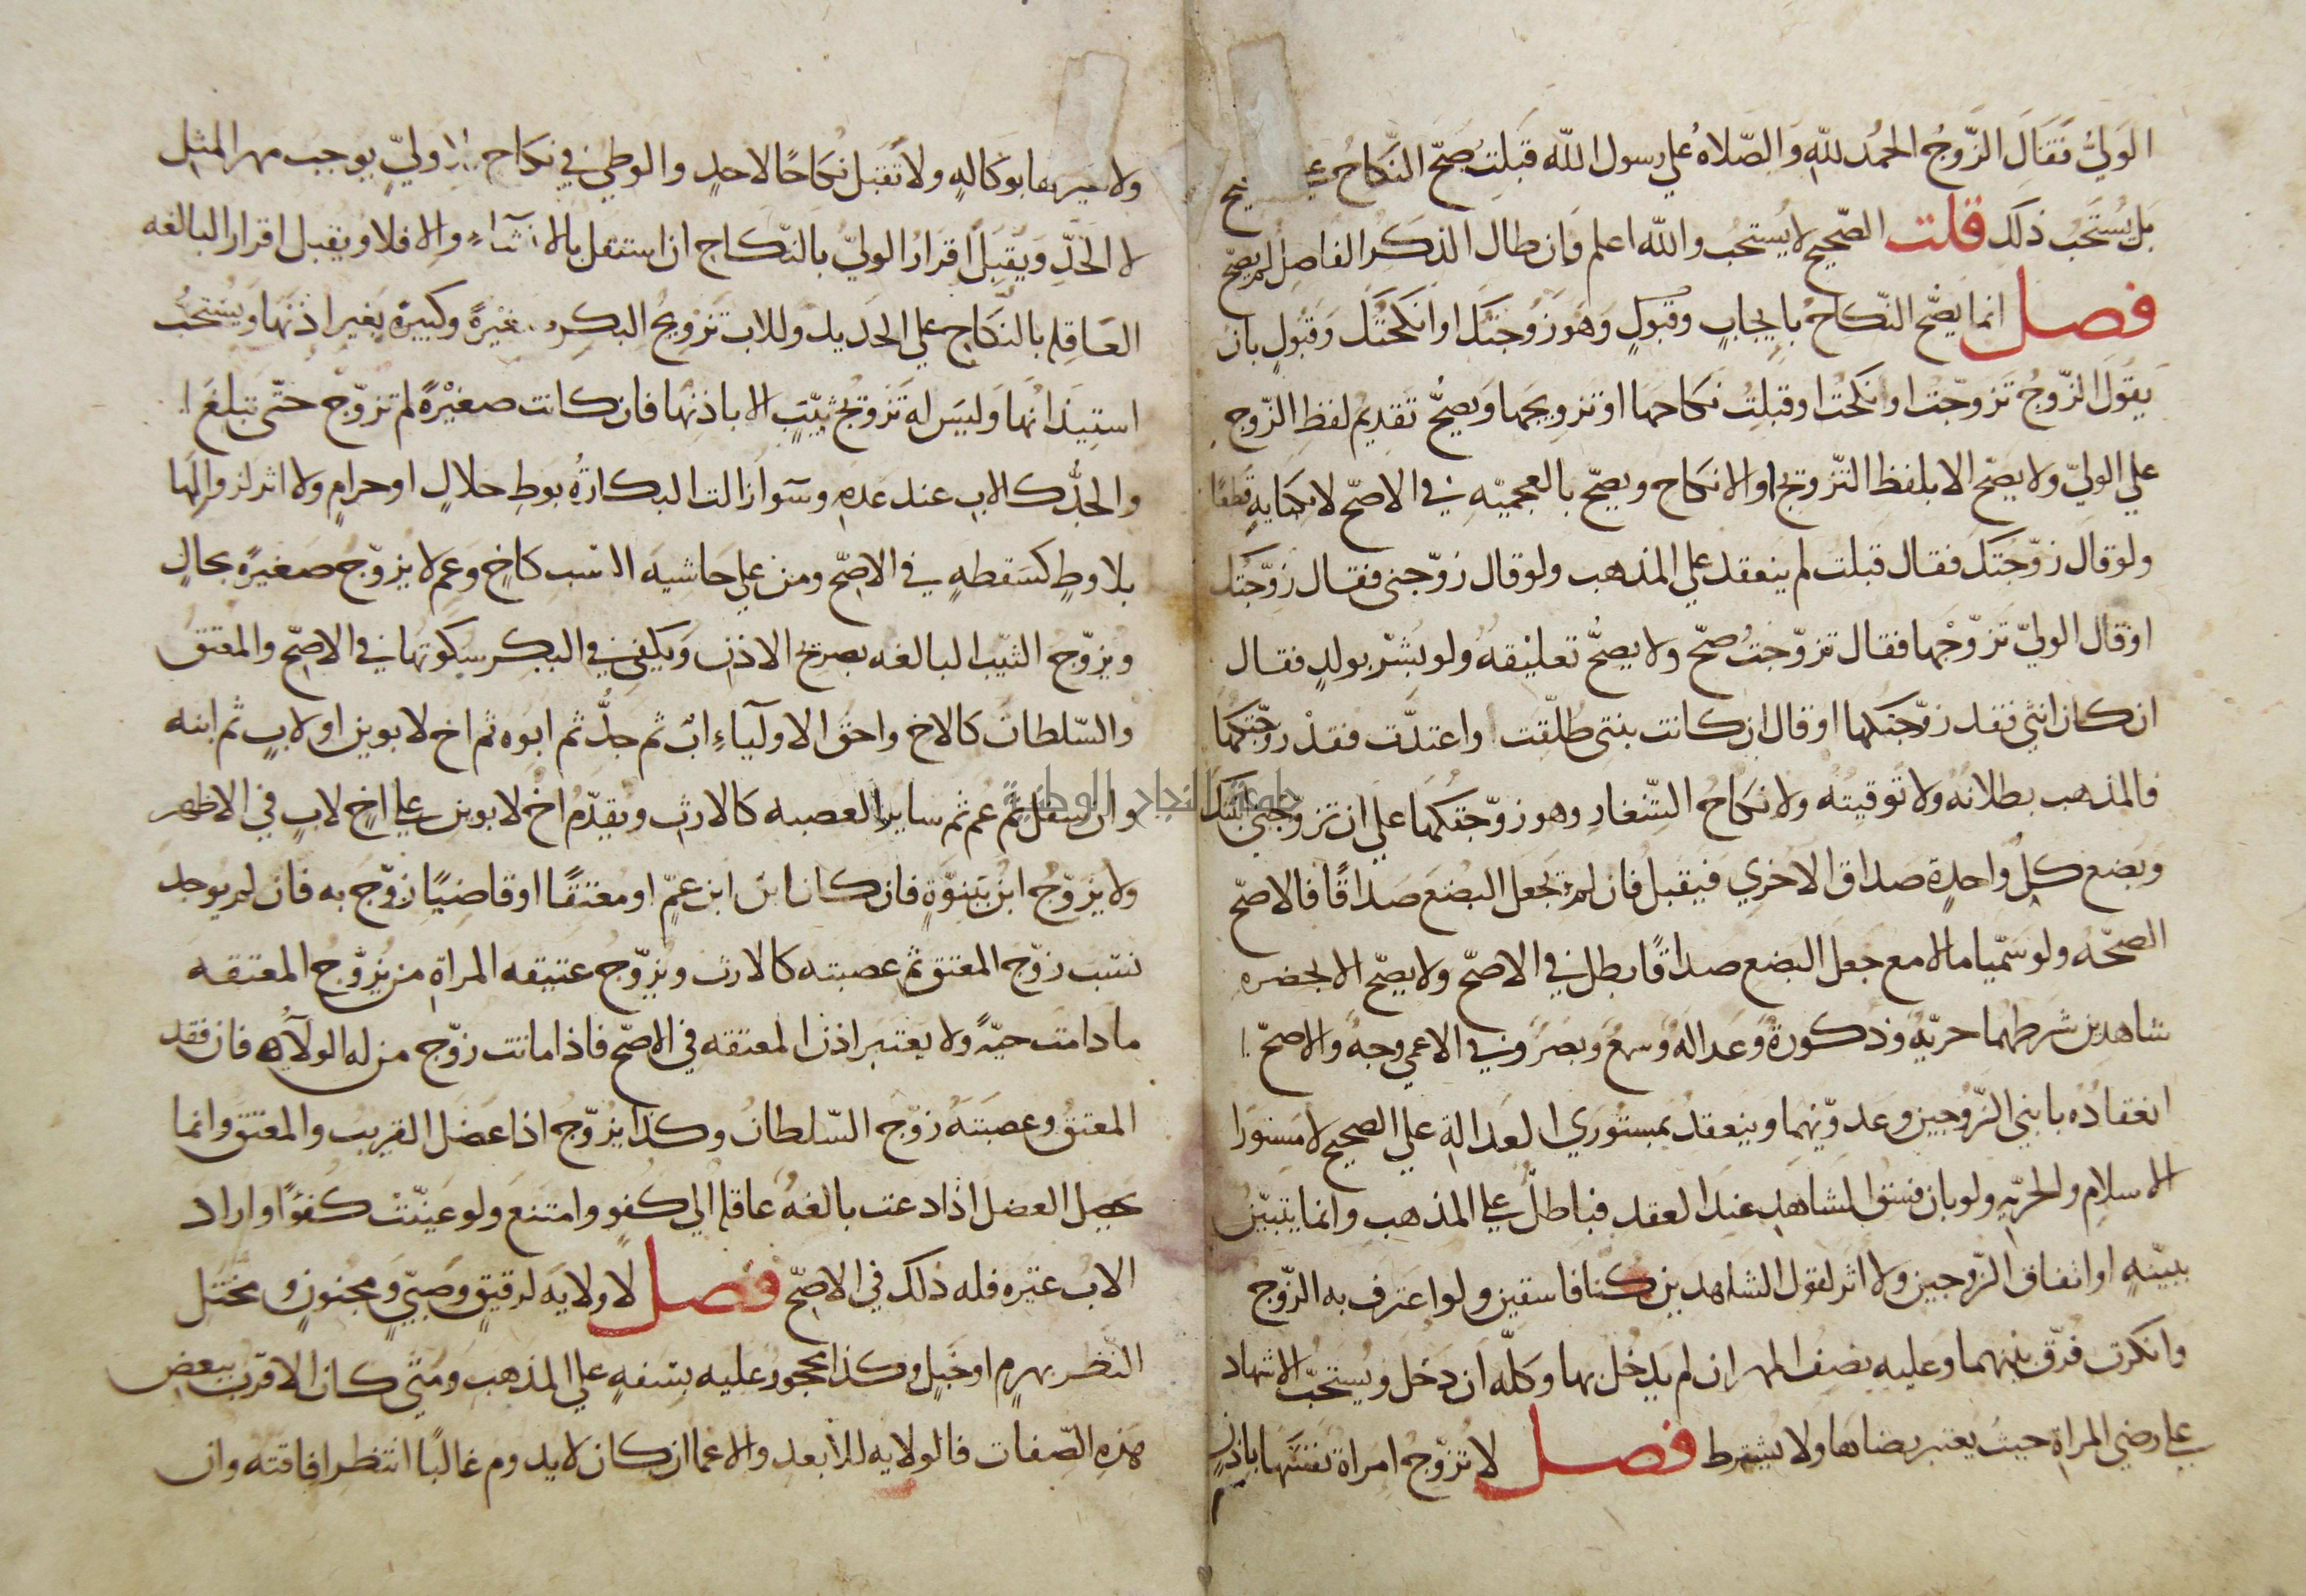 الوَليُّ فَقَالَ الزَّوجُ الحمُد للهِ وَالصّلاهُ علي رسول الله قَبلِتُ صَحّ النّكاحُ علي الصحيح
بَل يُستَحَبُّ ذلَكَ قلت الصّحيح لا يُستَحبُّ والله اعلم وَان طال الذكرُ الفاصِل لم يصحّ
فصل انما يصّح النّكاحُ بايجابٍ وقبُولٍ وَهوَ زَوجتُكَ او انكَحتُكَ وَقبُولٍ بان
يقوَل الزّوجُ تَزوجّت او نَكَحتُ او قبلِتُ نكاحهَا او تزويجَها وَيصحُّ تَقديمُ لفظ الزّوج
علي الوليّ ولا يصحّ الا بلفظ التّزويج او الانكاح ويصحّ بالعجميّه في الاصحّ لا بكنايهٍ قطعًا
ولو قال زوّجتكَ فقال قبلت لم ينعقد علي المذهب ولو قال زوّجني فقال زوّجتُكَ
او قال الوليّ تَزوّجْها فقال تزوّجتُ صحّ ولا يصحُّ تعليقهُ ولو بُشّر بولدٍ فقال
ان كان انثي فقد زوّجتكها او قال ان كانت بنتي طلّقت واعتدَّت فقدْ زوّجتكها
فالمذهب بطلانُهُ ولا تَوقيتُه ولا نكاحُ الشّغار وهو زوّجتكها علي ان تزوّجني بنتكَ
وَبضع كلّ واحدةٍ صداق الاخري فيقبل فان لم يُجعل البضعَ صدَاقًا فالاصحّ
الصحّه ولو سمّيا مالا مع جعل البضع صداقًا بطل في الاصحّ ولا يصّح الا بحضره
شاهدين شرطهما حريّه وذكورة وَعدالهُ وَسمعُ وَبصرُ وفي الاعمي وجهُ والاصحّ
انعقادُه بابني الزّوجين وعدوّيهما وينعقدُ بمستوري العدالةِ علي الصحيح لا مَستورَا
الاسلام والحريّه ولو بان فسقُ الشاهدِ عندَ العقدِ فباطلُّ علي المذهب وانما يتبيّنُ
ببيّنهٍ او اتفاق الزّوجين ولا اثر لقول الشاهدين كنّا فاسقين ولو اعترف به الزّوجُ
وانكرت فُرّق بينهما وعليه نصف المهر ان لم يَدخُل بها وكلّه ان دَخل ويُستحَبُّ الاشهاد
علي رضي المراةِ حيثُ يعتبر رضاها ولا يُشترط فصل لا تزوّجُ امراة نفسَها باذنٍ
ولا غيرها بوكالهٍ ولا تَقبل نكاحًا لاحدٍ والوطي في نكاحٍ بلا وليّ يوجب مهر المثل
لا الحَدّ وَيقبلُ اقرارُ الوليّ بالنّكاح ان استقل بالانشاءِ والا فلا ويُقبل اقرار البالغه
العَاقله بالنّكاح علي الجديد وللاب تزويجُ البكر صَغيْرةً وكبيرة بغير اذنهَا وَيستحَبُّ
استيذانُهَا وَليسَ لهِ تَزويج ثيّبٍ الا باذنِهَا فان كانت صغيْرةً لم تزوّج حتّي تبلغَ
والجدُّ كالابِ عند عدمِه وسَوا زالت البكارةُ بوطٍ حلالٍ او حرامٍ ولا اثر لزوالهَا
بلا وطٍ كسَقطهٍ في الاصحّ ومن علي حَاشيه النّسب كاخٍ وَعم لا يزوّج صغيرةً بحالٍ
ويزوّج الثيّب البالغه بصريح الاذنِ وَيكفي في البكر سكوتها في الاصحّ والمعتق
والسّلطانُ كالاخ واحقّ الاوليَاءِ ابٌ ثم جدُّ ثم ابوه ثم اخ لابوين او لابٍ ثم ابنه
وان سفل ثمّ عم ثم سايرُ العصبه كالارثِ ويقدّمُ اخُ لابوين علي اخٍ لابٍ في الاظهر
ولا يُزوّجُ ابنٌ ببنوَّةٍ فان كان ابن ابن عمٍّ او معتقًا او قاضيًا زوّج به فان لم يوجد
نسَبَ زوّجَ المعتق ثم عصبته كالارث ويزوّج عتيقه المراةِ من يُزوّجُ المعتقه
ما دامت حيّهً ولا يعتبر اذن المعتقه في الاصحّ فاذا ماتت زوّج من له الولآء فان فقد
المعتقُ وعصبَتهُ زوّج السّلطانُ وكذا يزوّج اذا عَضَل القريبُ والمعتق وانما
يحصل العضل اذا دعت بالغهُ عاقله الي كفوٍ وامتنعَ ولو عيّنَتْ كفوًا واراد
الابُ غيْره فله ذلك في الاصحّ فصل لا ولايَه لرقيقٍ وصَبيٍّ وَمجنونٍ ومختَل
النّظر بهرمٍ او خَبلٍ وكذا محجورُ عليه بسَفهٍ علي المذهب وَمَتَي كان الاقربُ ببعض
هذهِ الصّفات فالولايه للابعدِ والاغما ان كان لا يدوم غالبًا انتظر افاقته وان
جامعة النجاح الوطنية